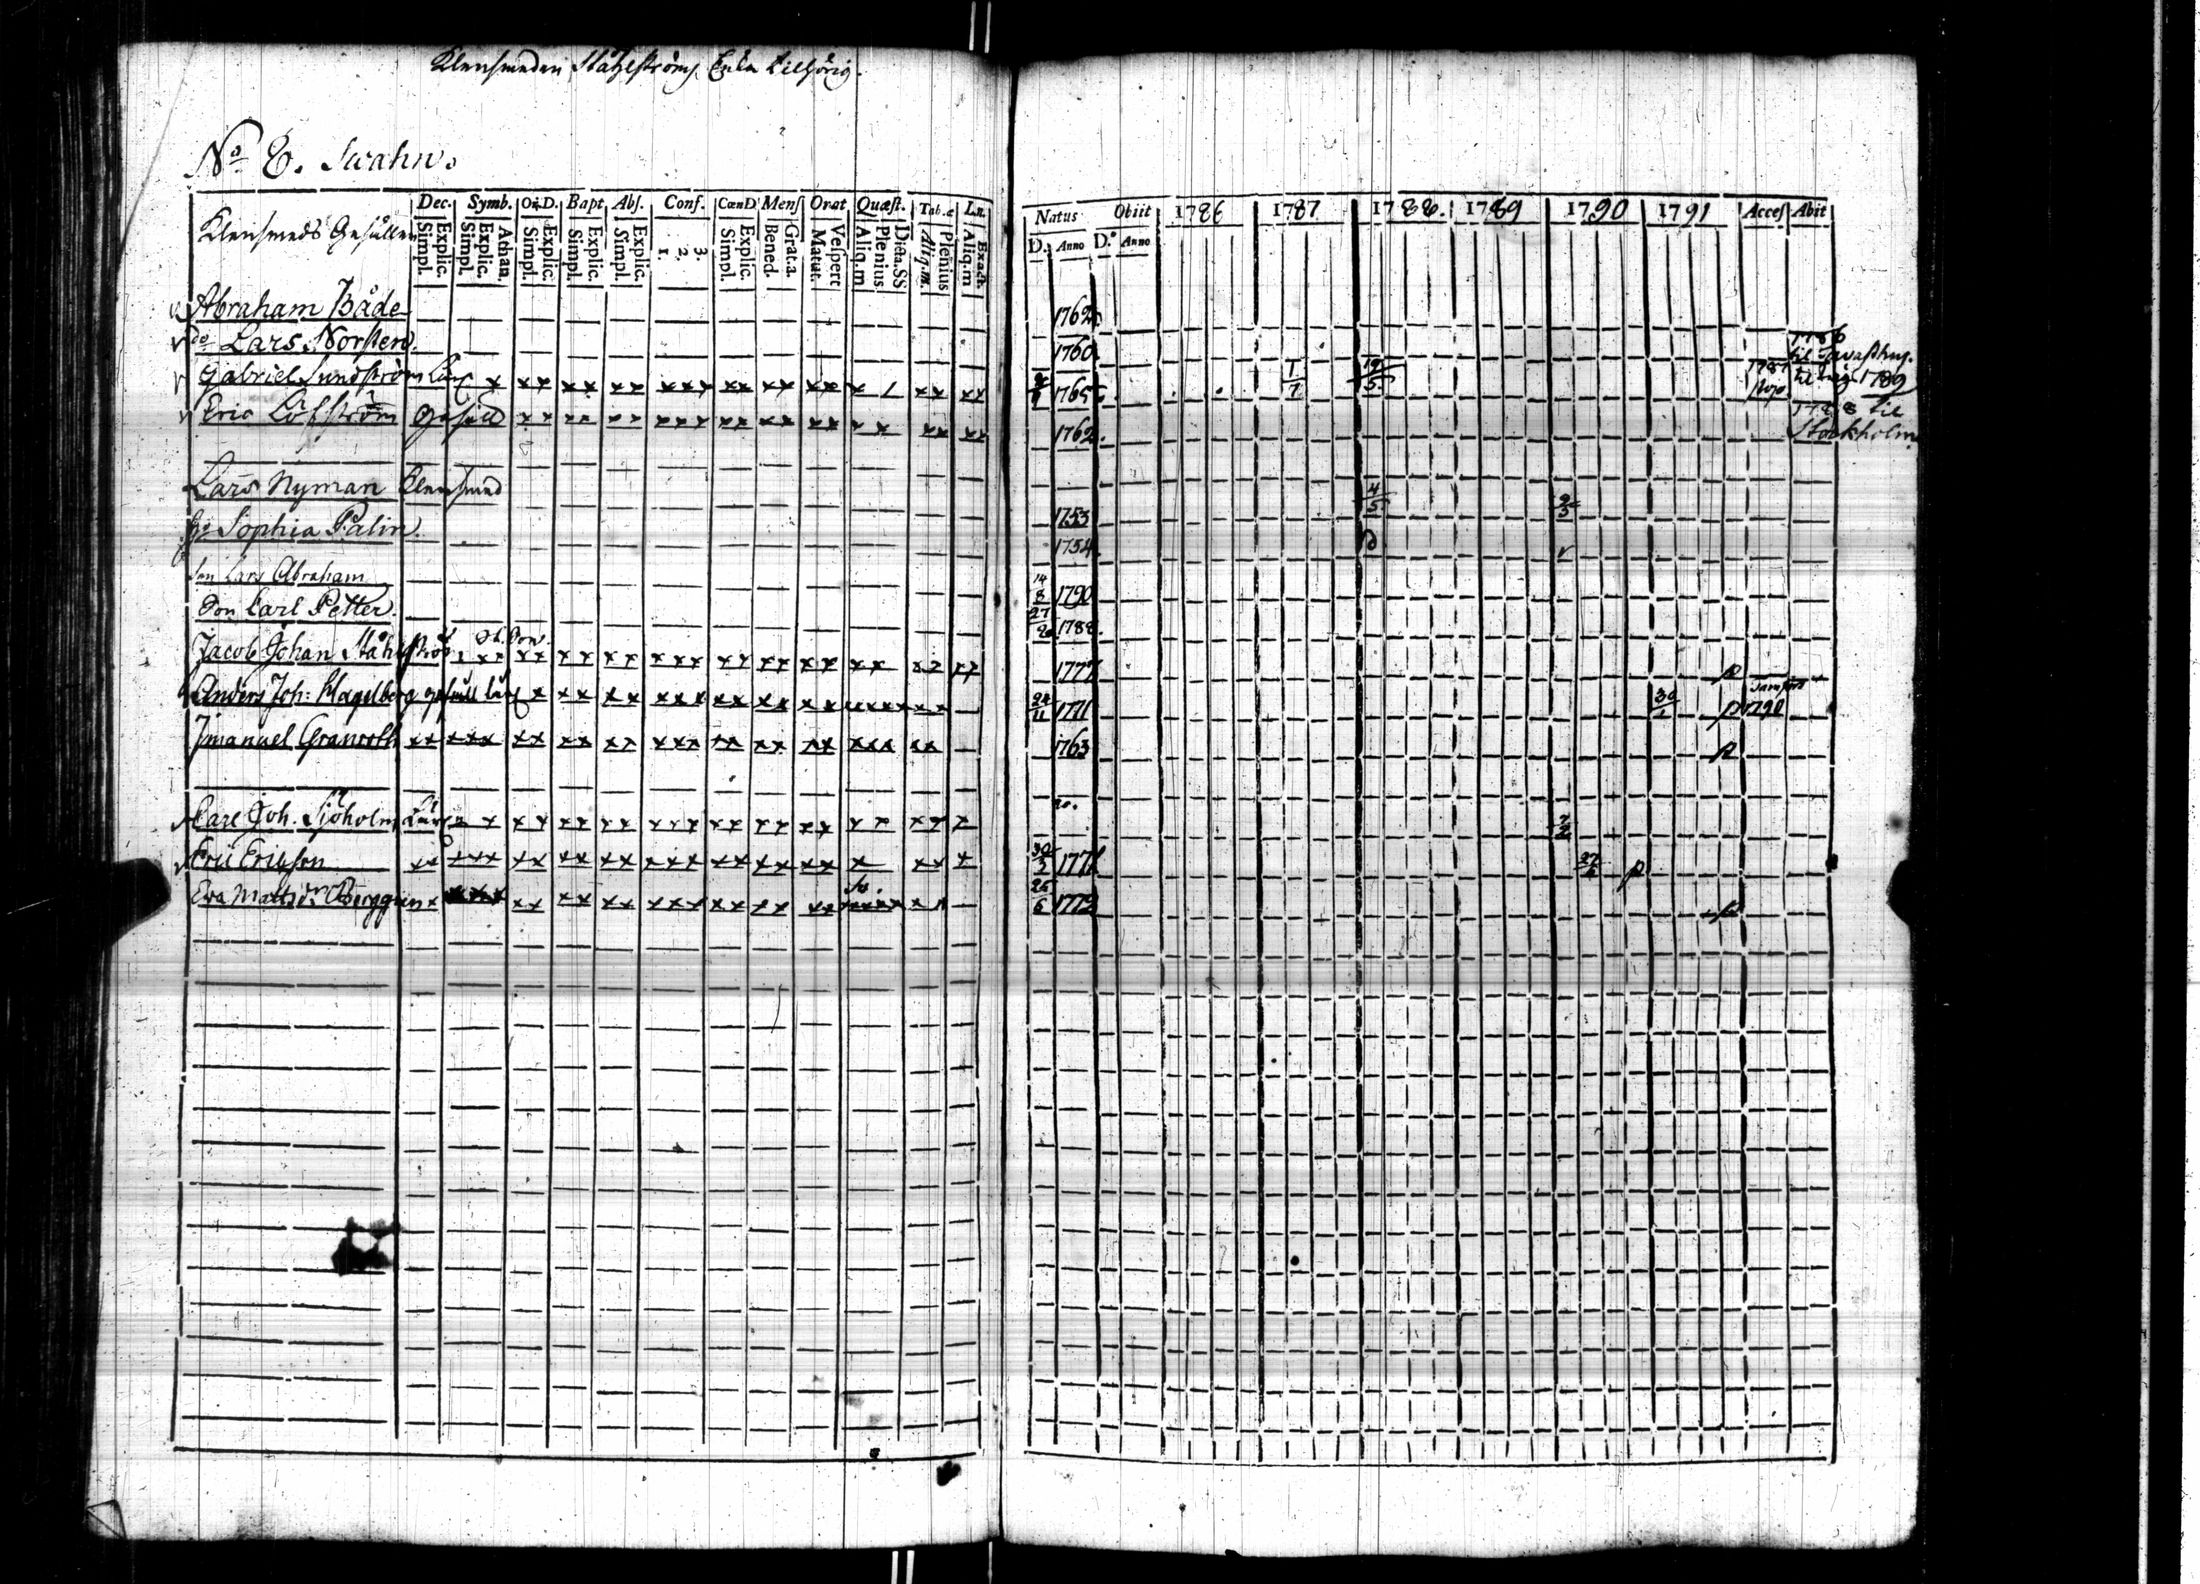 Klensmeden Ståhlströms Enka tilhörig.
No 8. Swahn.
Dec. Symb. Or. D. Bapt. Abs. Conf. Cœn D Mens Orat Quæst. Tab. æ L.n.
Natus Obiit 1786 1787 1788. 1789 1790 1791 Access Abit
Klensmeds Gesällen
Simpl. Explic. Simpl. Explic. Athan. Simpl. Explic. Simpl. Explic. Simpl. Explic. 1. 2. 3. Simpl. Explic. Bened. Grat. a. Matut. Vespert Aliq. m Plenius Dicta. SS Aliq. m Plenius Aliq. m Exact.
D. Anno D. Anno
Abraham Både 1762
do Lars Norsten 1760 1786 til Tavasthus.
Gabriel Lundström Lär x xx xx xx xxx xx xx xx x xx xx 1765 1/7 19/5 1787 til 1789
Eric Löfström Gesell xx xx xx xxx xx xx xx xx xx xx 1762. 1788 til Stockholm
Lars Nyman Klensmed 1753 4/5 2/5
H: Sophia Palin. 1754
Son Lars Abraham 14/8 1790
Son Carl Petter. 27/2 1788.
Jacob Johan Ståhlström xx xx xx xx xxx xx xx xx xx xx xx 1777
Anders Joh: Hagelberg gesäll x xx xx xxx xx xx xx xxxx xx 24/11 1771 30/1 1790
Imanuel Granroth xx xxx xx xx xx xxx xx xx xx xxx xx 1763
Carl Joh. Sjöholm Lär x xx xx xx xxx xx xx xx xx xx x 7/2
Eric Ericsson xx xxx xx xx xx xxx xx xx xx x xx x 30/3 1771 27/6
Eva Matsdr Berggren x xxxx xx xx xx xxx xx xx xx xxxx xx 25/6 1772